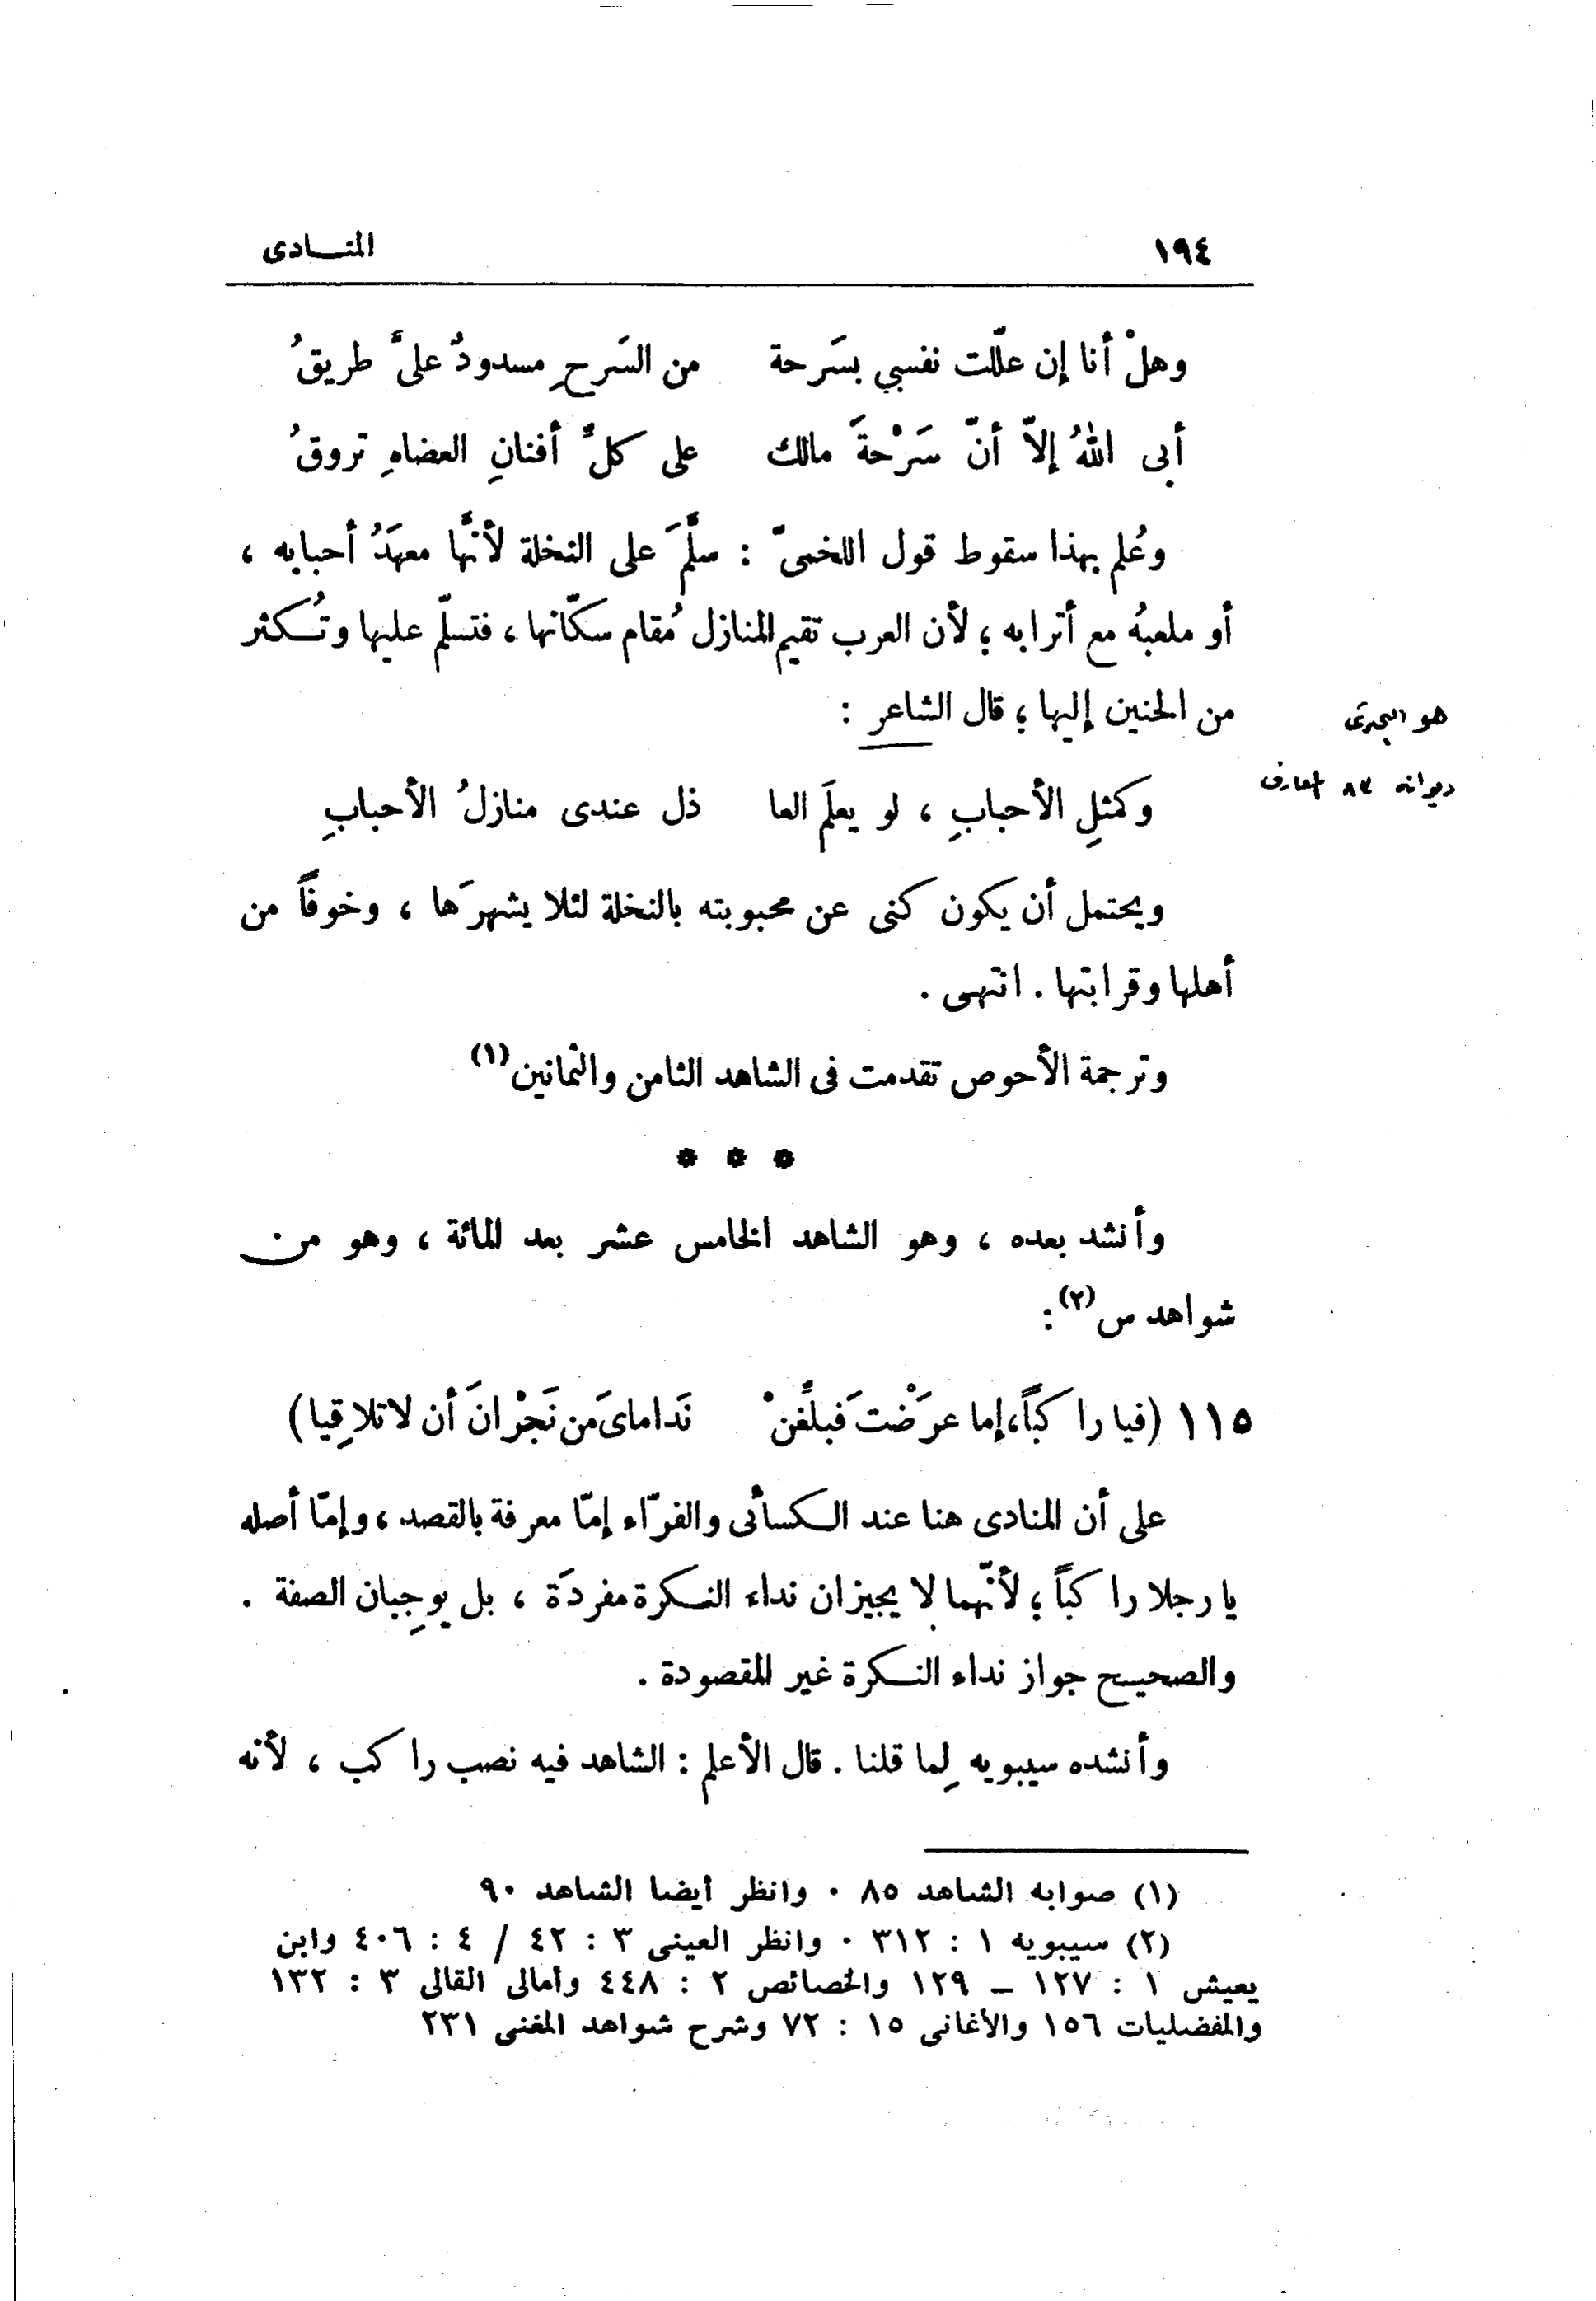 ١٩٤ المنـــادى
وهلْ أنا إن علّلت نفسي بسَرحة من السَرحِ مسدودٌ علىَّ طريقُ
أبى اللهُ إلاّ أنّ سَرْحةَ مالك على كلِّ أفنانِ العضاهِ تروقُ
وعُلم بهذا سقوط قول اللخمىّ : سلَّمَ على النخلة لأنَّها معهَدُ أحبابه ،
أو ملعبُه مع أترابه ؛ لأن العرب تقيم المنازل مُقام سكّانها ، فتسلّم عليها وتُـكثر
من الحنين إليها ؛ قال الشاعر :
هو البحترى
ديوانه ٨٣ المعارف
وكمثلِ الأحبابِ ، لو يعلَم العا ذل عندى منازلُ الأحبابِ
ويحتمل أن يكون كنى عن محبوبته بالنخلة لئلا يشهرَها ، وخوفاً من
أهلها وقرابتها . انتهى .
وترجمة الأحوص تقدمت فى الشاهد الثامن والثمانين (١)
* * *
وأنشد بعده ، وهو الشاهد الخامس عشر بعد المائة ، وهو من
شواهد س (٢) :
١١٥ (فيا راكباً، إما عرَضْتَ فبلِّغنْ نَداماىَ من نَجْرانَ أن لا تلاقِيا)
على أن المنادى هنا عند الـكسائى والفرّاء إمّا معرفة بالقصد ، وإمّا أصله
يا رجلا راكباً ؛ لأنّهما لا يجيزان نداء النـكرة مفردَة ، بل يوجِبان الصفة .
والصحيـح جواز نداء النـكرة غير المقصودة .
وأنشده سيبويه لِما قلنا . قال الأعلم : الشاهد فيه نصب راكب ، لأنه
(١) صوابه الشاهد ٨٥ . وانظر أيضا الشاهد ٩٠
(٢) سيبويه ١ : ٣١٢ . وانظر العينى ٣ : ٤٢ / ٤ : ٤٠٦ وابن
يعيش ١ : ١٢٧ – ١٢٩ والخصائص ٢ : ٤٤٨ وأمالى القالى ٣ : ١٣٢
والمفضليات ١٥٦ والأغانى ١٥ : ٧٢ وشرح شواهد المغنى ٢٣١